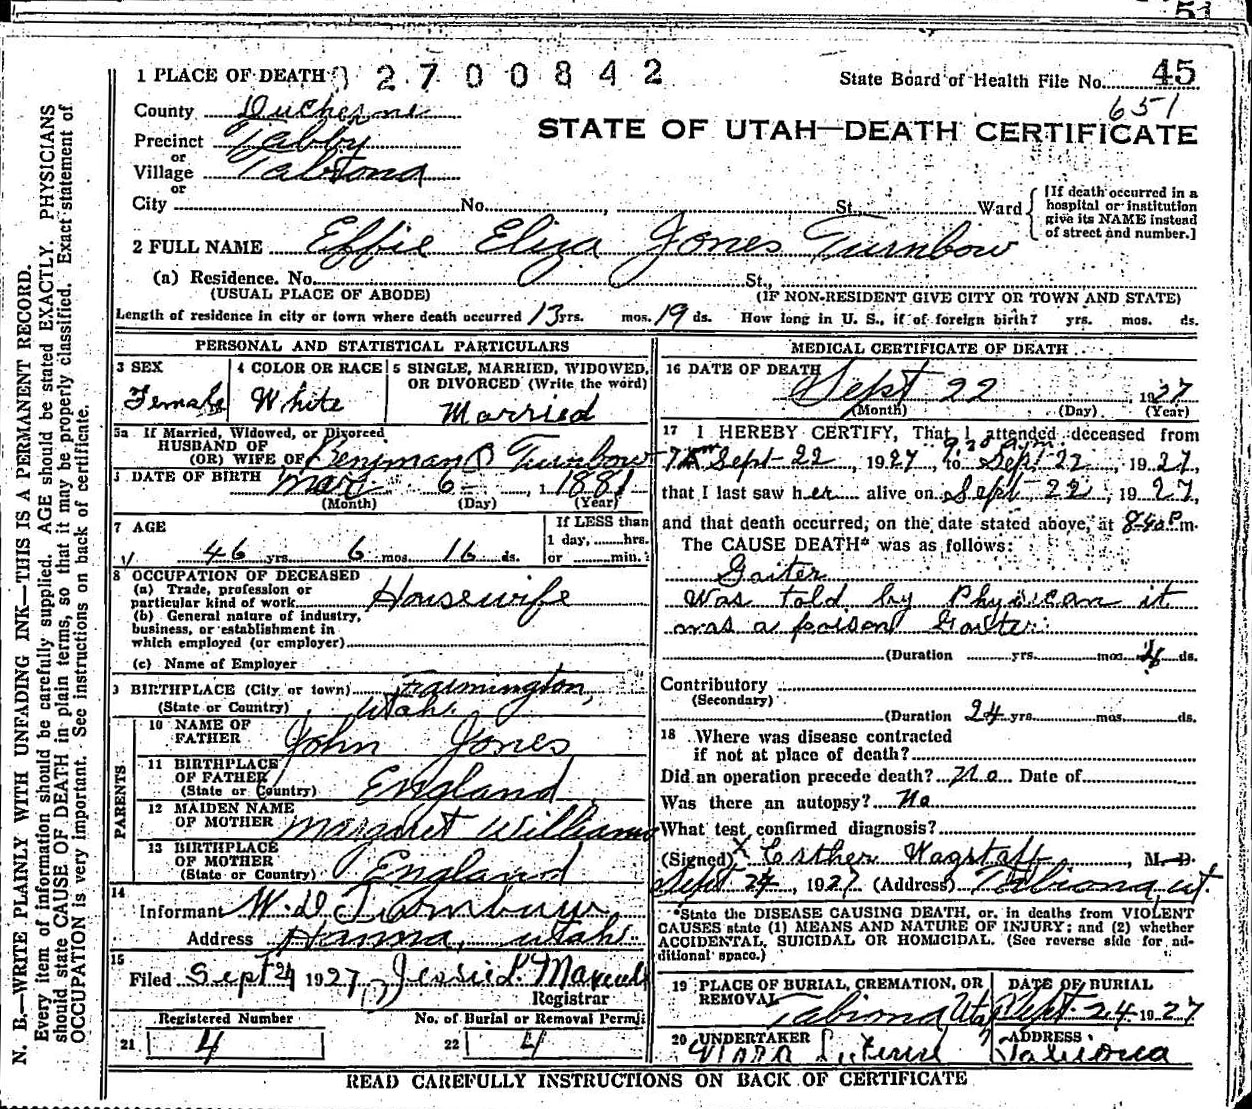 51
1 PLACE OF DEATH 02700842
State Board of Health File No. 45
651
County Duchesne
STATE OF UTAH—DEATH CERTIFICATE
Precinct Tabby
or
Village Tabiona
or
City No. , St. Ward
[If death occurred in a
hospital or institution
give its NAME instead
of street and number.]
2 FULL NAME Effie Eliza Jones Turnbow
(a) Residence. No. St.,
(USUAL PLACE OF ABODE) (IF NON-RESIDENT GIVE CITY OR TOWN AND STATE)
Length of residence in city or town where death occurred 13 yrs. mos. 19 ds. How long in U. S., if of foreign birth? yrs. mos. ds.
PERSONAL AND STATISTICAL PARTICULARS
3 SEX
Female
4 COLOR OR RACE
White
5 SINGLE, MARRIED, WIDOWED,
OR DIVORCED (Write the word)
Married
5a If Married, Widowed, or Divorced
HUSBAND OF
(OR) WIFE OF Benjman B Turnbow
DATE OF BIRTH Mar 6 1881
(Month) (Day) (Year)
7 AGE
46 yrs. 6 mos. 16 ds.
If LESS than
1 day, hrs.
or min.
8 OCCUPATION OF DECEASED
(a) Trade, profession or
particular kind of work Housewife
(b) General nature of industry,
business, or establishment in
which employed (or employer)
(c) Name of Employer
9 BIRTHPLACE (City or town) Farmington,
(State or Country) Utah.
PARENTS
10 NAME OF
FATHER John Jones
11 BIRTHPLACE
OF FATHER
(State or Country) England
12 MAIDEN NAME
OF MOTHER Margaret Williams
13 BIRTHPLACE
OF MOTHER
(State or Country) England
14
Informant W. D Turnbow
Address Hanna, Utah.
15
Filed Sept 24 1927 Jessie
Registrar
Registered Number No. of Burial or Removal Permit
21 4 22 4
MEDICAL CERTIFICATE OF DEATH
16 DATE OF DEATH
Sept 22 , 1927
(Month) (Day) (Year)
17 I HEREBY CERTIFY, That I attended deceased from
Sept 22, 1927, to Sept 22, 1927,
that I last saw her alive on Sept 22, 1927,
and that death occurred, on the date stated above, at 8:40 P.m.
The CAUSE DEATH* was as follows:
Goiter
Was told by Physican it
was a poison Goiter
(Duration yrs. mos. ds.
Contributory
(Secondary)
(Duration 24 yrs. mos. ds.
18 Where was disease contracted
if not at place of death?
Did an operation precede death? No Date of
Was there an autopsy? No
What test confirmed diagnosis?
(Signed) X Esther Wagstaff, M. D.
Sept 24, 1927 (Address) Tabiona ut.
*State the DISEASE CAUSING DEATH, or, in deaths from VIOLENT
CAUSES state (1) MEANS AND NATURE OF INJURY; and (2) whether
ACCIDENTAL, SUICIDAL OR HOMICIDAL. (See reverse side for ad-
ditional space.)
19 PLACE OF BURIAL, CREMATION, OR
REMOVAL
Tabiona Utah
DATE OF BURIAL
Sept. 24 1927
20 UNDERTAKER
ADDRESS
Tabiona
READ CAREFULLY INSTRUCTIONS ON BACK OF CERTIFICATE
N. B.—WRITE PLAINLY WITH UNFADING INK—THIS IS A PERMANENT RECORD.
Every item of information should be carefully supplied. AGE should be stated EXACTLY. PHYSICIANS
should state CAUSE OF DEATH in plain terms, so that it may be properly classified. Exact statement of
OCCUPATION is very important. See instructions on back of certificate.